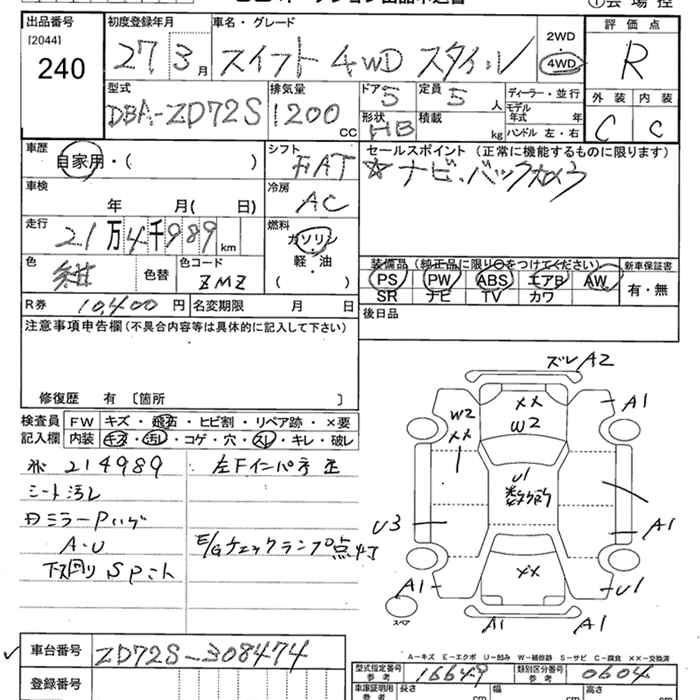 出品番号 初度登録年月 車名・グレード 2WD・4WD 評価点
[2044]
240 27年3月 スイフト 4WD スタイル R
型式 DBA-ZD72S 排気量 1200 CC ドア 5 定員 5 人 ディーラー・並行
形状 HB 積載 kg モデル年式 年 ハンドル 左・右
外装 C 内装 C
車歴 自家用・( ) シフト FAT
セールスポイント (正常に機能するものに限ります)
☆ナビ・バックカメラ
車検 年 月( 日) 冷房 AC
走行 21万4千989km 燃料 ガソリン・軽・油 ( )
色 紺 色替 色コード ZMZ
装備品 (純正品に限り○をつけてください) 新車保証書
PS PW ABS エアB AW 有・無
SR ナビ TV カワ
R券 10,400円 名変期限 月 日
後日品
注意事項申告欄(不具合内容等は具体的に記入して下さい)
修復歴 有 〔箇所 〕
検査員記入欄 FW キズ・飛石・ヒビ割・リペア跡・×要
内装 キズ・汚レ・コゲ・穴・スレ・キレ・破レ
214989 左Fインパネ 歪
シート汚レ
A・U E/Gチェックランプ点灯
下廻りSPニト
ズレA2
A1
W2 ×× ××
W2
U1
U3
A1
××
A1
U1
スペア
A1
A1
A-キズ E-エクボ U-凹み W-補修跡 S-サビ C-腐食 ××-交換済
車台番号 ZD72S-308474
型式指定番号 参考 16649 類別区分番号 参考 0604
登録番号 車庫証明用 参考 長さ cm 幅 cm 高さ cm